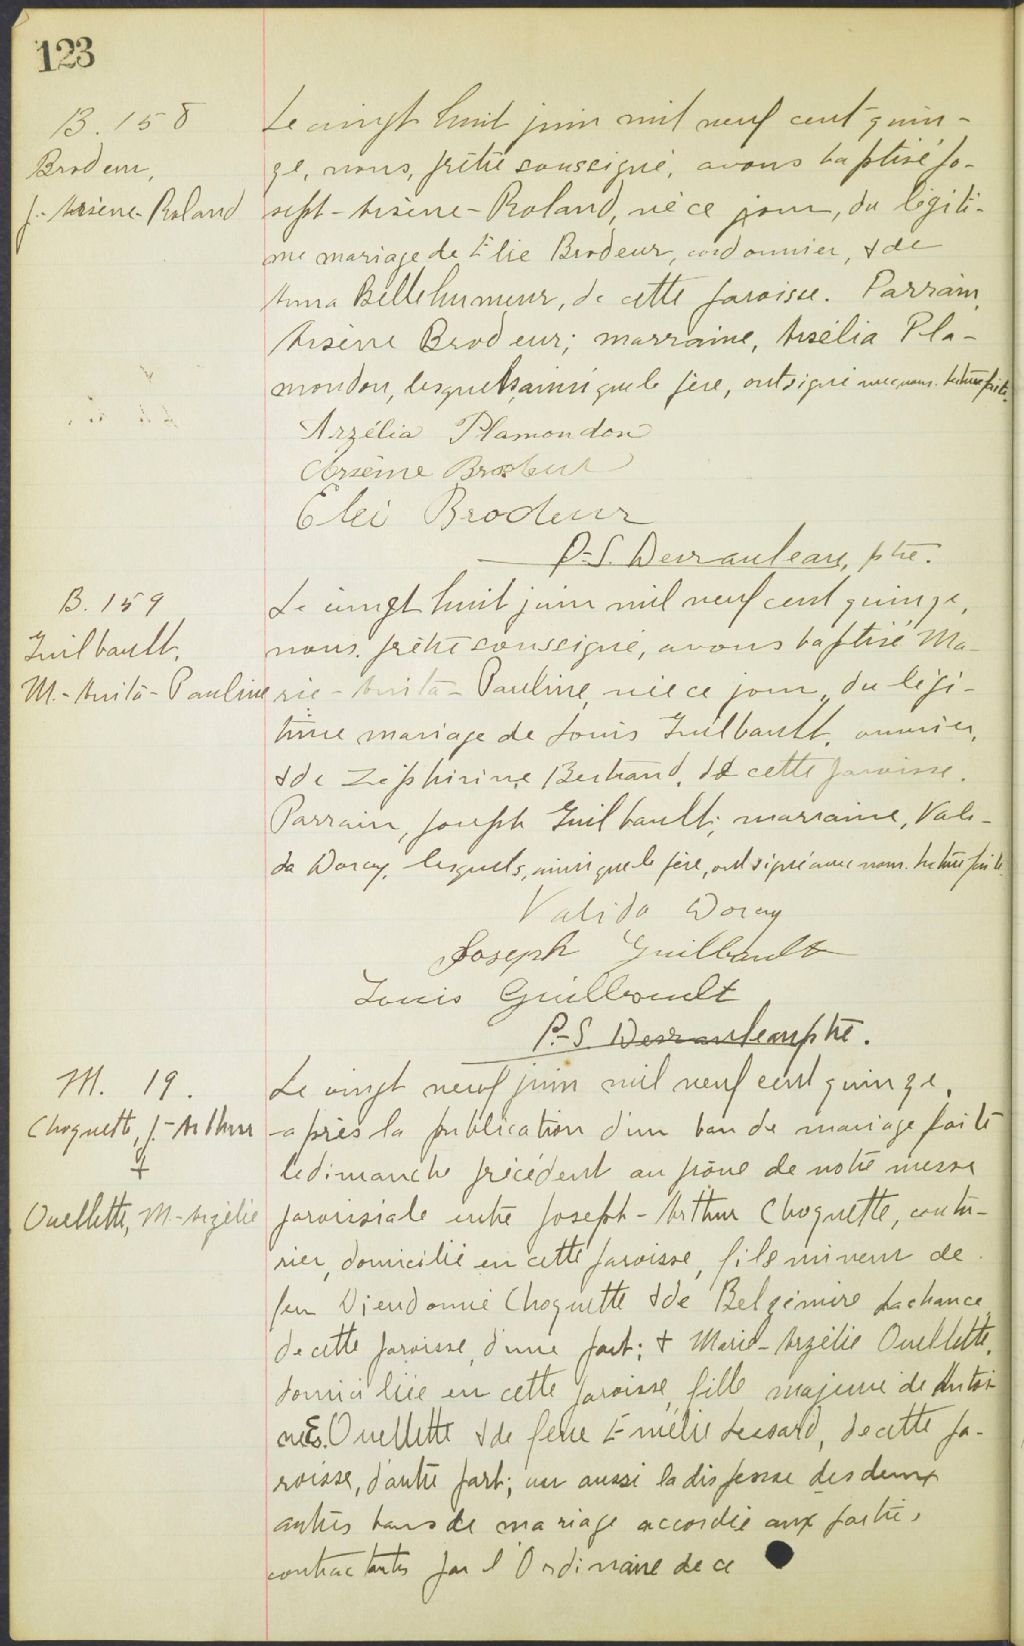 123
B. 158
Brodeur,
J.-Arsène-Roland
Le vingt huit juin mil neuf cent quin-
ze, nous, prêtre soussigné, avons baptisé Jo-
seph-Arsène-Roland, né ce jour, du légiti-
me mariage de Elie Brodeur, cordonnier, & de
Anna Bellehumeur, de cette paroisse. Parrain,
Arsène Brodeur; marraine, Arsélia Pla-
mondon, lesquels, ainsi que le père, ont signé avec nous. Lecture faite.
Arzélia Plamondon
Arsème Brodeur
Elei Brodeur
P.-S. Desrauleau, ptre.
B. 159
Guilbault,
M.-Anita-Pauline
Le vingt huit juin mil neuf cent quinze,
nous, prêtre soussigné, avons baptisé Ma-
rie-Anita-Pauline, née ce jour, du légi-
time mariage de Louis Guilbault, ouvrier,
& de Zéphirine Bertrand, de cette paroisse.
Parrain, Joseph Guilbault; marraine, Vali-
da Doray, lesquels, ainsi que le père, ont signé avec nous. Lecture faite.
Valida Doray
Joseph Guilbault
Louis Guilbault
P.-S. Desrauleau ptre.
M. 19.
Choquette, J.-Arthur
&
Ouellette, M-Arzélie
Le vingt neuf juin mil neuf cent quinze,
après la publication d'un ban de mariage faite
le dimanche précédent au prône de notre messe
paroissiale entre Joseph-Arthur Choquette, coutu-
rier, domicilié en cette paroisse, fils mineur de
feu Dieudonné Choquette & de Belzémire Lachance
de cette paroisse, d'une part; & Marie-Arzélie Ouellette,
domiciliée en cette paroisse, fille majeure de Antoi
ne S. Ouellette & de feue Emélie Lessard, de cette pa-
roisse, d'autre part; vu aussi la dispense des deux
autres bans de mariage accordée aux parties
contractantes par l'Ordinaire de ce